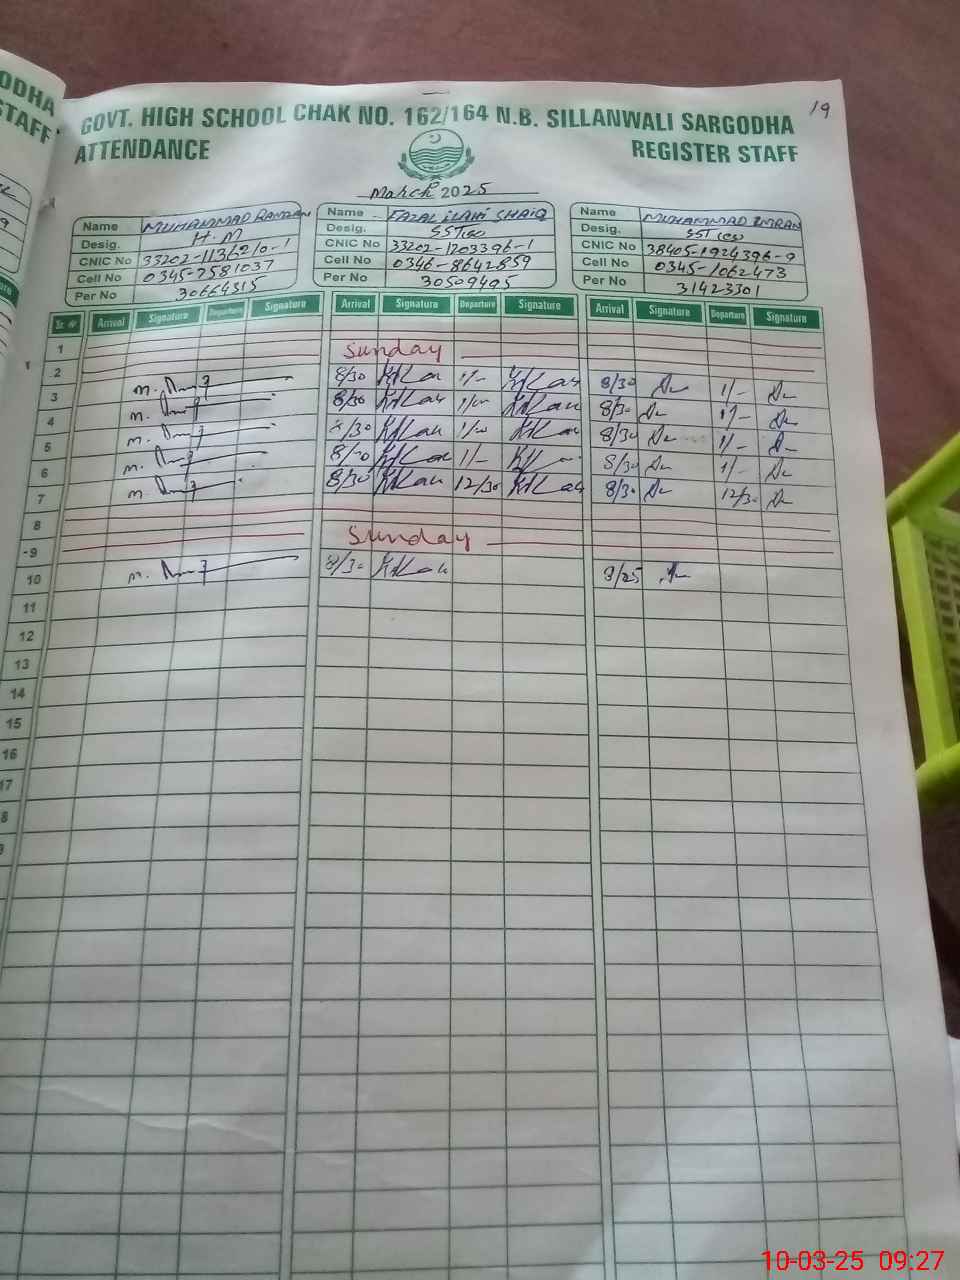 ODHA
STAFF
19
GOVT. HIGH SCHOOL CHAK NO. 162/164 N.B. SILLANWALI SARGODHA
ATTENDANCE REGISTER STAFF
March 2025
Name MUHAMMAD RAMZAN
Desig. H.M
CNIC No 33202-1136210-1
Cell No 0345-7581037
Per No 30664315
Name FAZAL ILAHI SHAIQ
Desig. SST
CNIC No 33202-1203396-1
Cell No 0346-8642859
Per No 30509405
Name MUHAMMAD IMRAN
Desig. SST
CNIC No 38405-1924396-9
Cell No 0345-1062473
Per No 31423301
Sr. # Arrival Signature Departure Signature Arrival Signature Departure Signature Arrival Signature Departure Signature
1
2 Sunday
3 8/30 1/- 8/30 1/-
4 8/30 1/- 8/30 1/-
5 8/30 1/- 8/30 1/-
6 1/- 8/30 1/-
7 8/30 12/30 8/30 12/30
8
9 Sunday
10 8/30 8/25
11
12
13
14
15
16
17
8
9
10-03-25 09:27